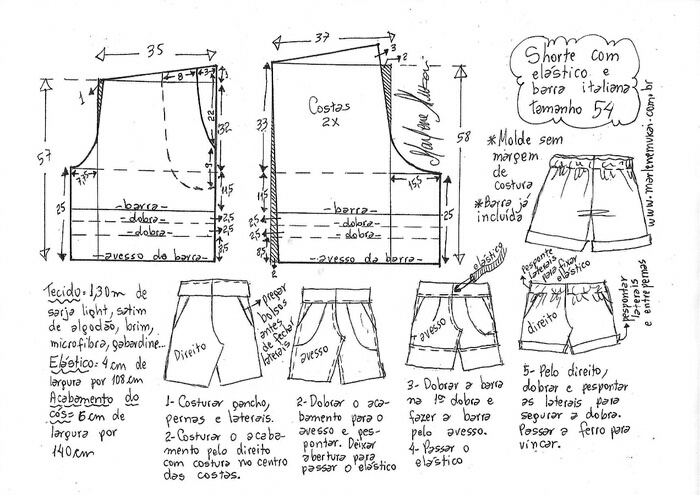 35
8
3
1
22
32
9
11,5
2,5
2,5
3,5
57
25
1
7,5
barra
dobra
dobra
avesso da barra
37
3
2
Costas
2X
Marlene Mukai
33
58
15,5
11,5
2,5
2,5
8,5
2
25
barra
dobra
dobra
avesso da barra
Shorte com
elástico e
barra italiana
tamanho 54
*Molde sem
margem
de
costura
*Barra já
incluída
www.marlenemukai.com.br
Tecido: 1,30m de
sarja light, satim
de algodão, brim,
microfibra, gabardine...
Elástico: 4 cm de
largura por 108 cm
Acabamento do
cós: 6 cm de
largura por
140 cm
Direito
Prepar
bolsos
antes
de fechar
laterais
1- Costurar gancho,
pernas e laterais.
2- Costurar o acaba-
mento pelo direito
com costura no centro
das costas.
avesso
2- Dobrar o aca-
bamento para o
avesso e pes-
pontar. Deixar
abertura para
passar o elástico
elástico
avesso
3- Dobrar a barra
na 1ª dobra e
fazer a barra
pelo avesso.
4- Passar o
elástico
pesponte
laterais
para fixar
elástico
direito
pespontar
laterais
e entrepernas
5- Pelo direito,
dobrar e pespontar
as laterais para
segurar a dobra.
Passar a ferro para
vincar.